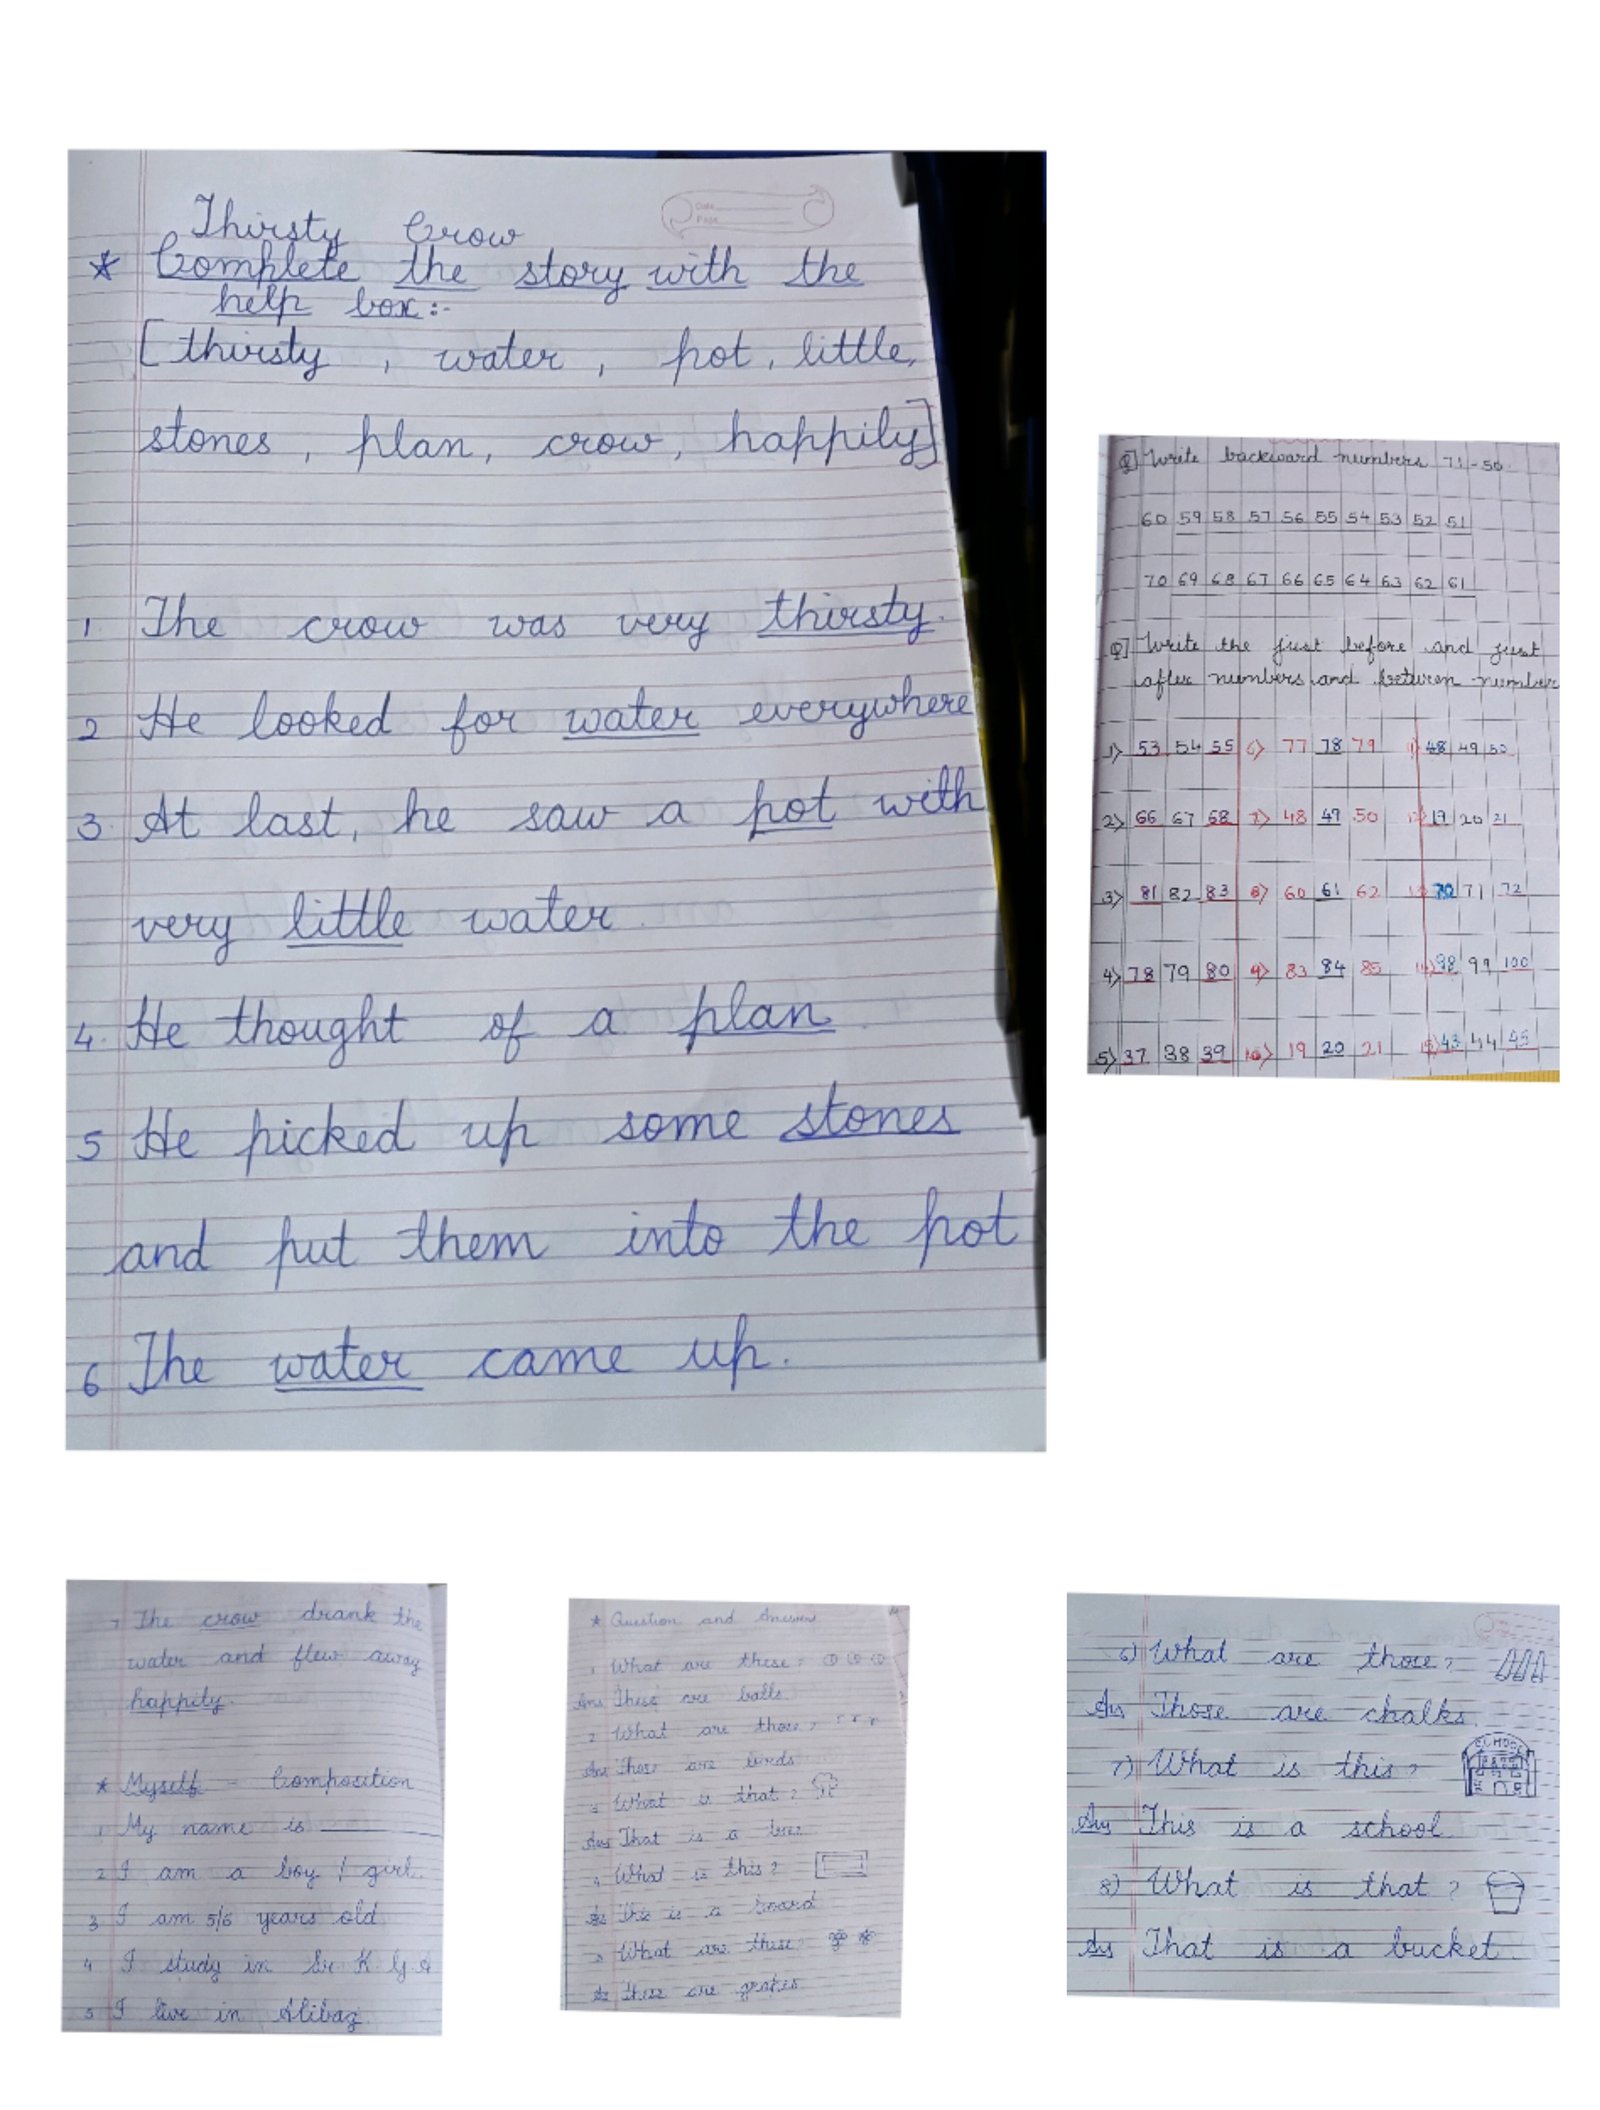 Thirsty Crow
* Complete the story with the
help box:-
[thirsty, water, pot, little,
stones, plan, crow, happily]
1 The crow was very thirsty.
2 He looked for water everywhere
3. At last, he saw a pot with
very little water.
4. He thought of a plan.
5 He picked up some stones
and put them into the pot
6 The water came up.
Q] Write backward numbers 71-50.
60 59 58 57 56 55 54 53 52 51
70 69 68 67 66 65 64 63 62 61
Q] Write the just before and just
after numbers and between number
1) 53 54 55 6) 77 78 79 11) 48 49 50
2) 66 67 68 7) 48 49 50 12) 19 20 21
3) 81 82 83 8) 60 61 62 13) 70 71 72
4) 78 79 80 9) 83 84 85 14) 98 99 100
5) 37 38 39 10) 19 20 21 15) 43 44 45
7 The crow drank the
water and flew away
happily.
* Myself - Composition
1 My name is
2 I am a boy / girl.
3 I am 5/6 years old
4 I study in Sr. K G A
5 I live in Alibag.
* Question and Answers
1 What are these?
Ans These are balls.
2 What are those?
Ans Those are birds
3 What is that?
Ans That is a tree
4 What is this?
Ans This is a board
5 What are these?
Ans These are grapes
6) What are those?
Ans Those are chalks.
7) What is this?
SCHOOL
Ans This is a school.
8) What is that?
Ans That is a bucket.